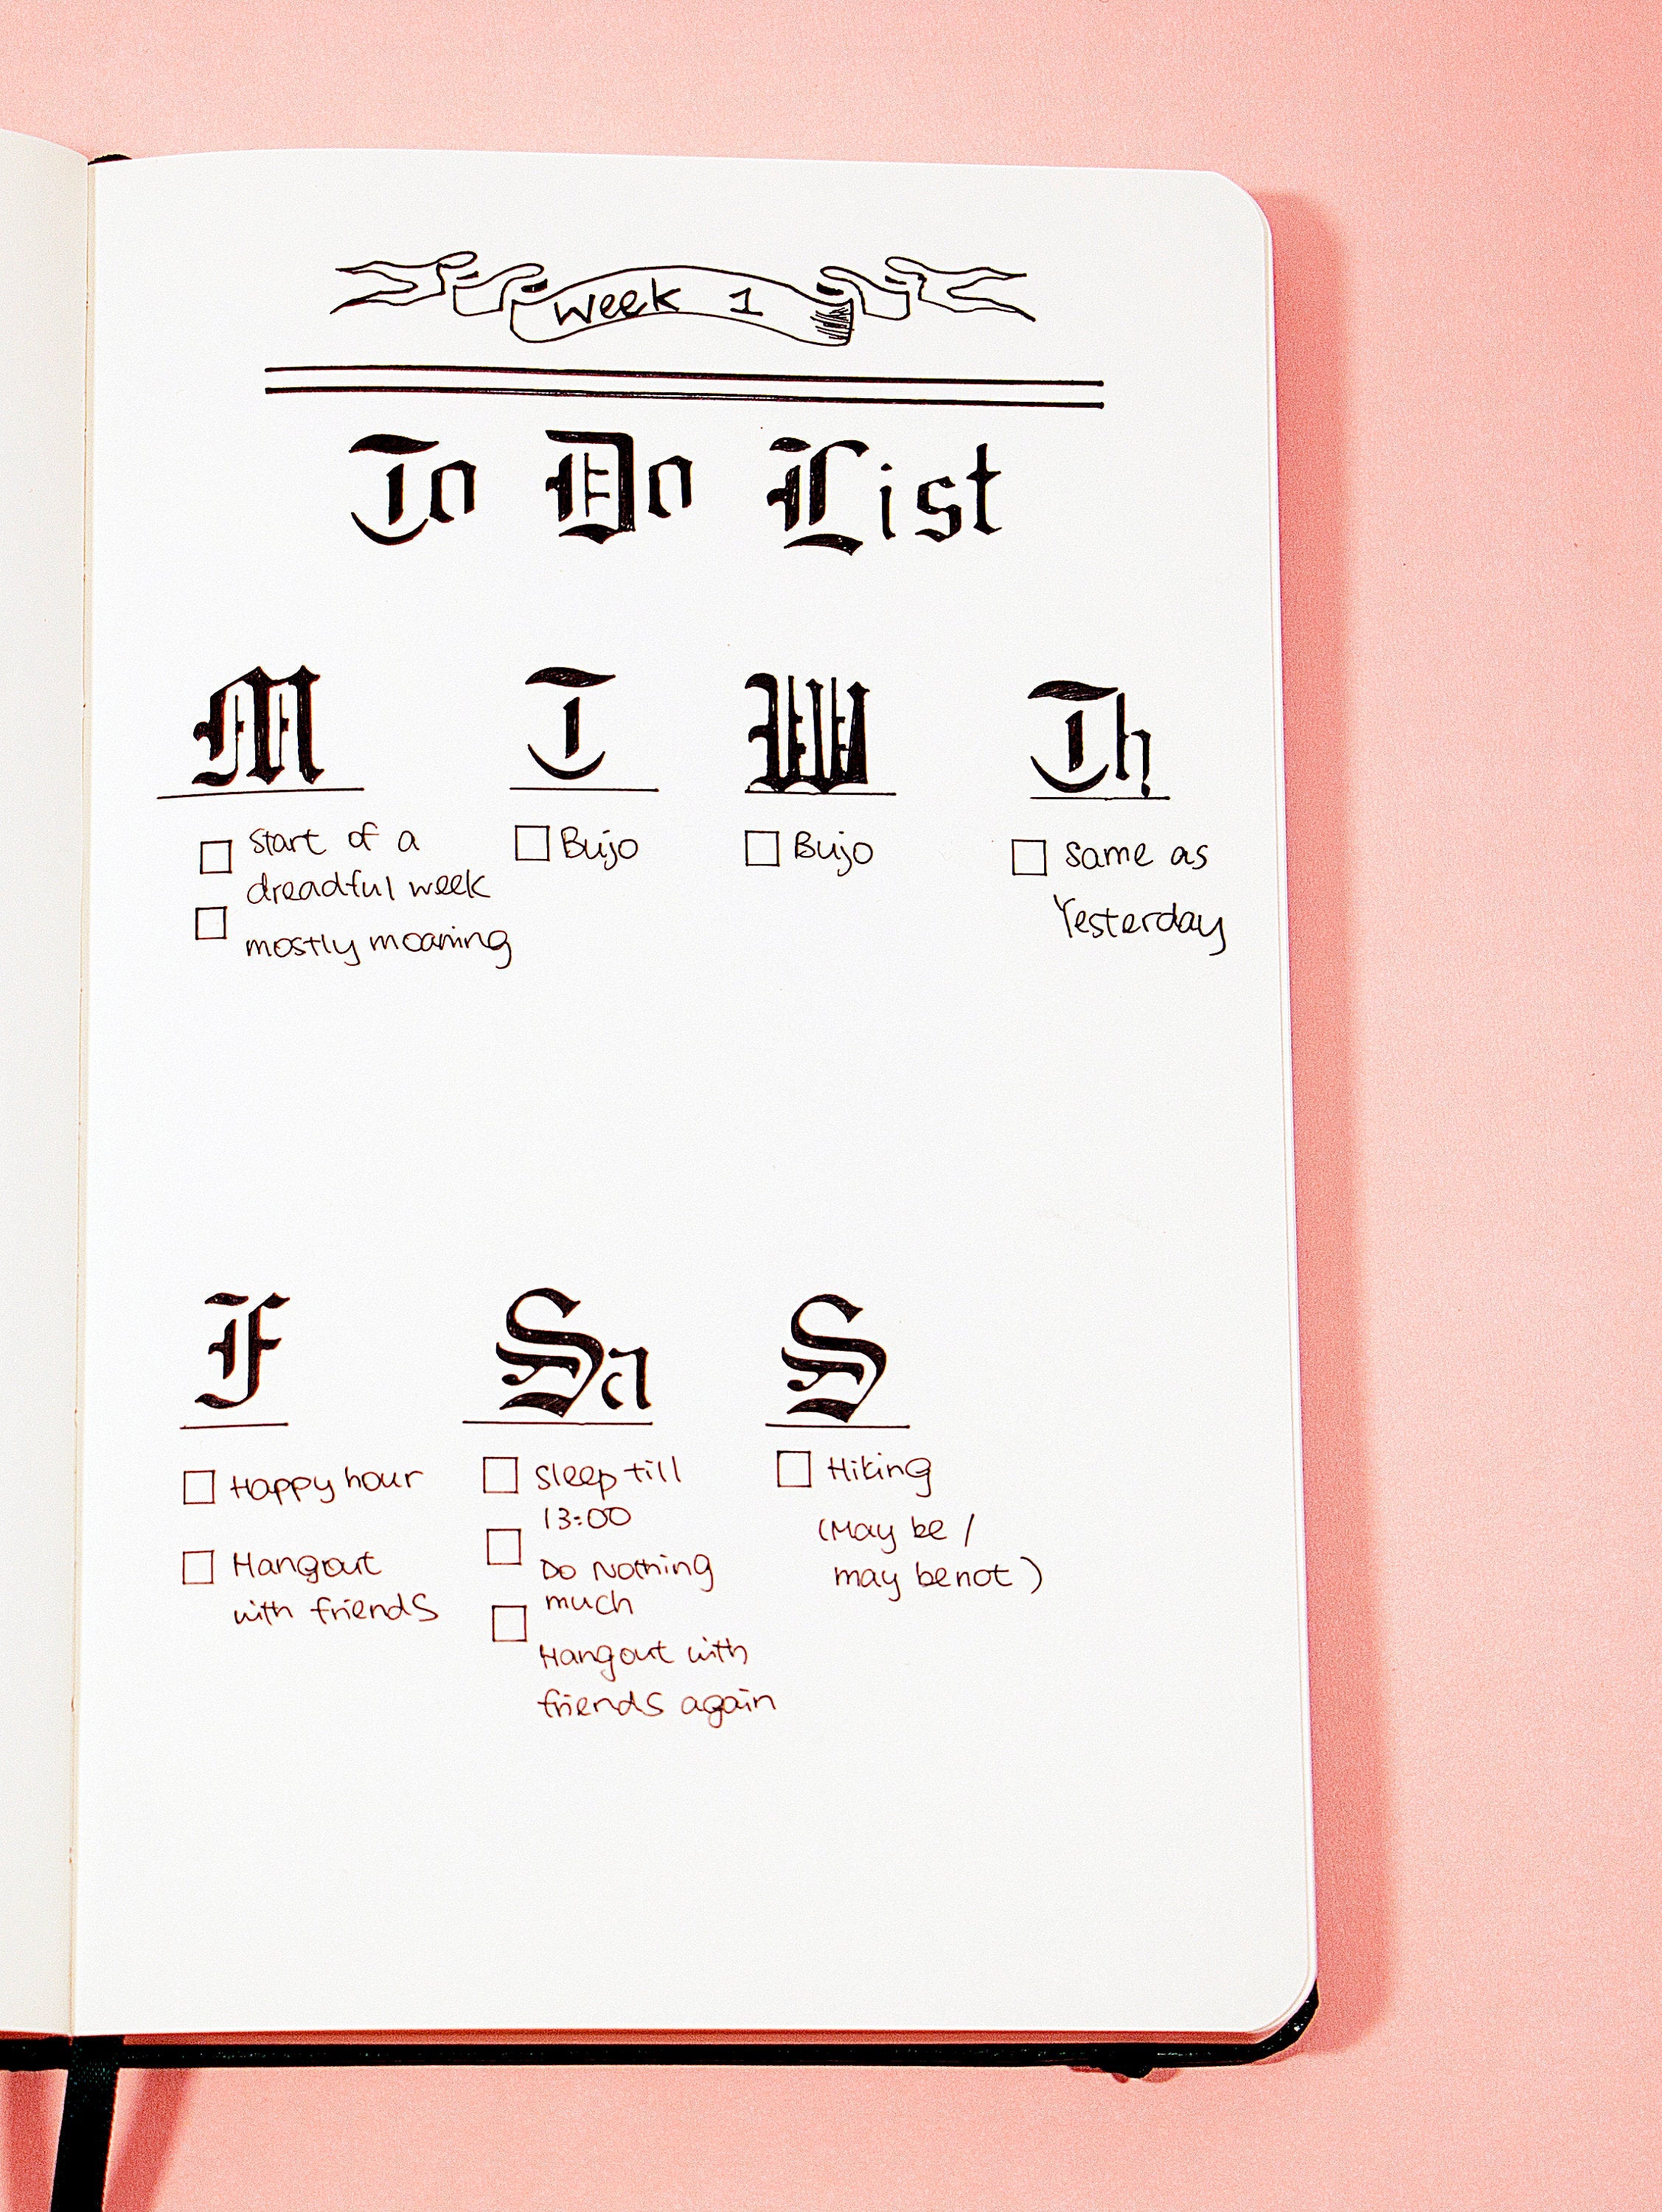 Week 1
To Do List
M
Start of a
dreadful week
mostly moaning
T
Bujo
W
Bujo
Th
Same as
Yesterday
F
Happy hour
Hangout
with friends
Sa
Sleep till
13:00
Do Nothing
much
Hangout with
friends again
S
Hiking
(May be /
may be not)